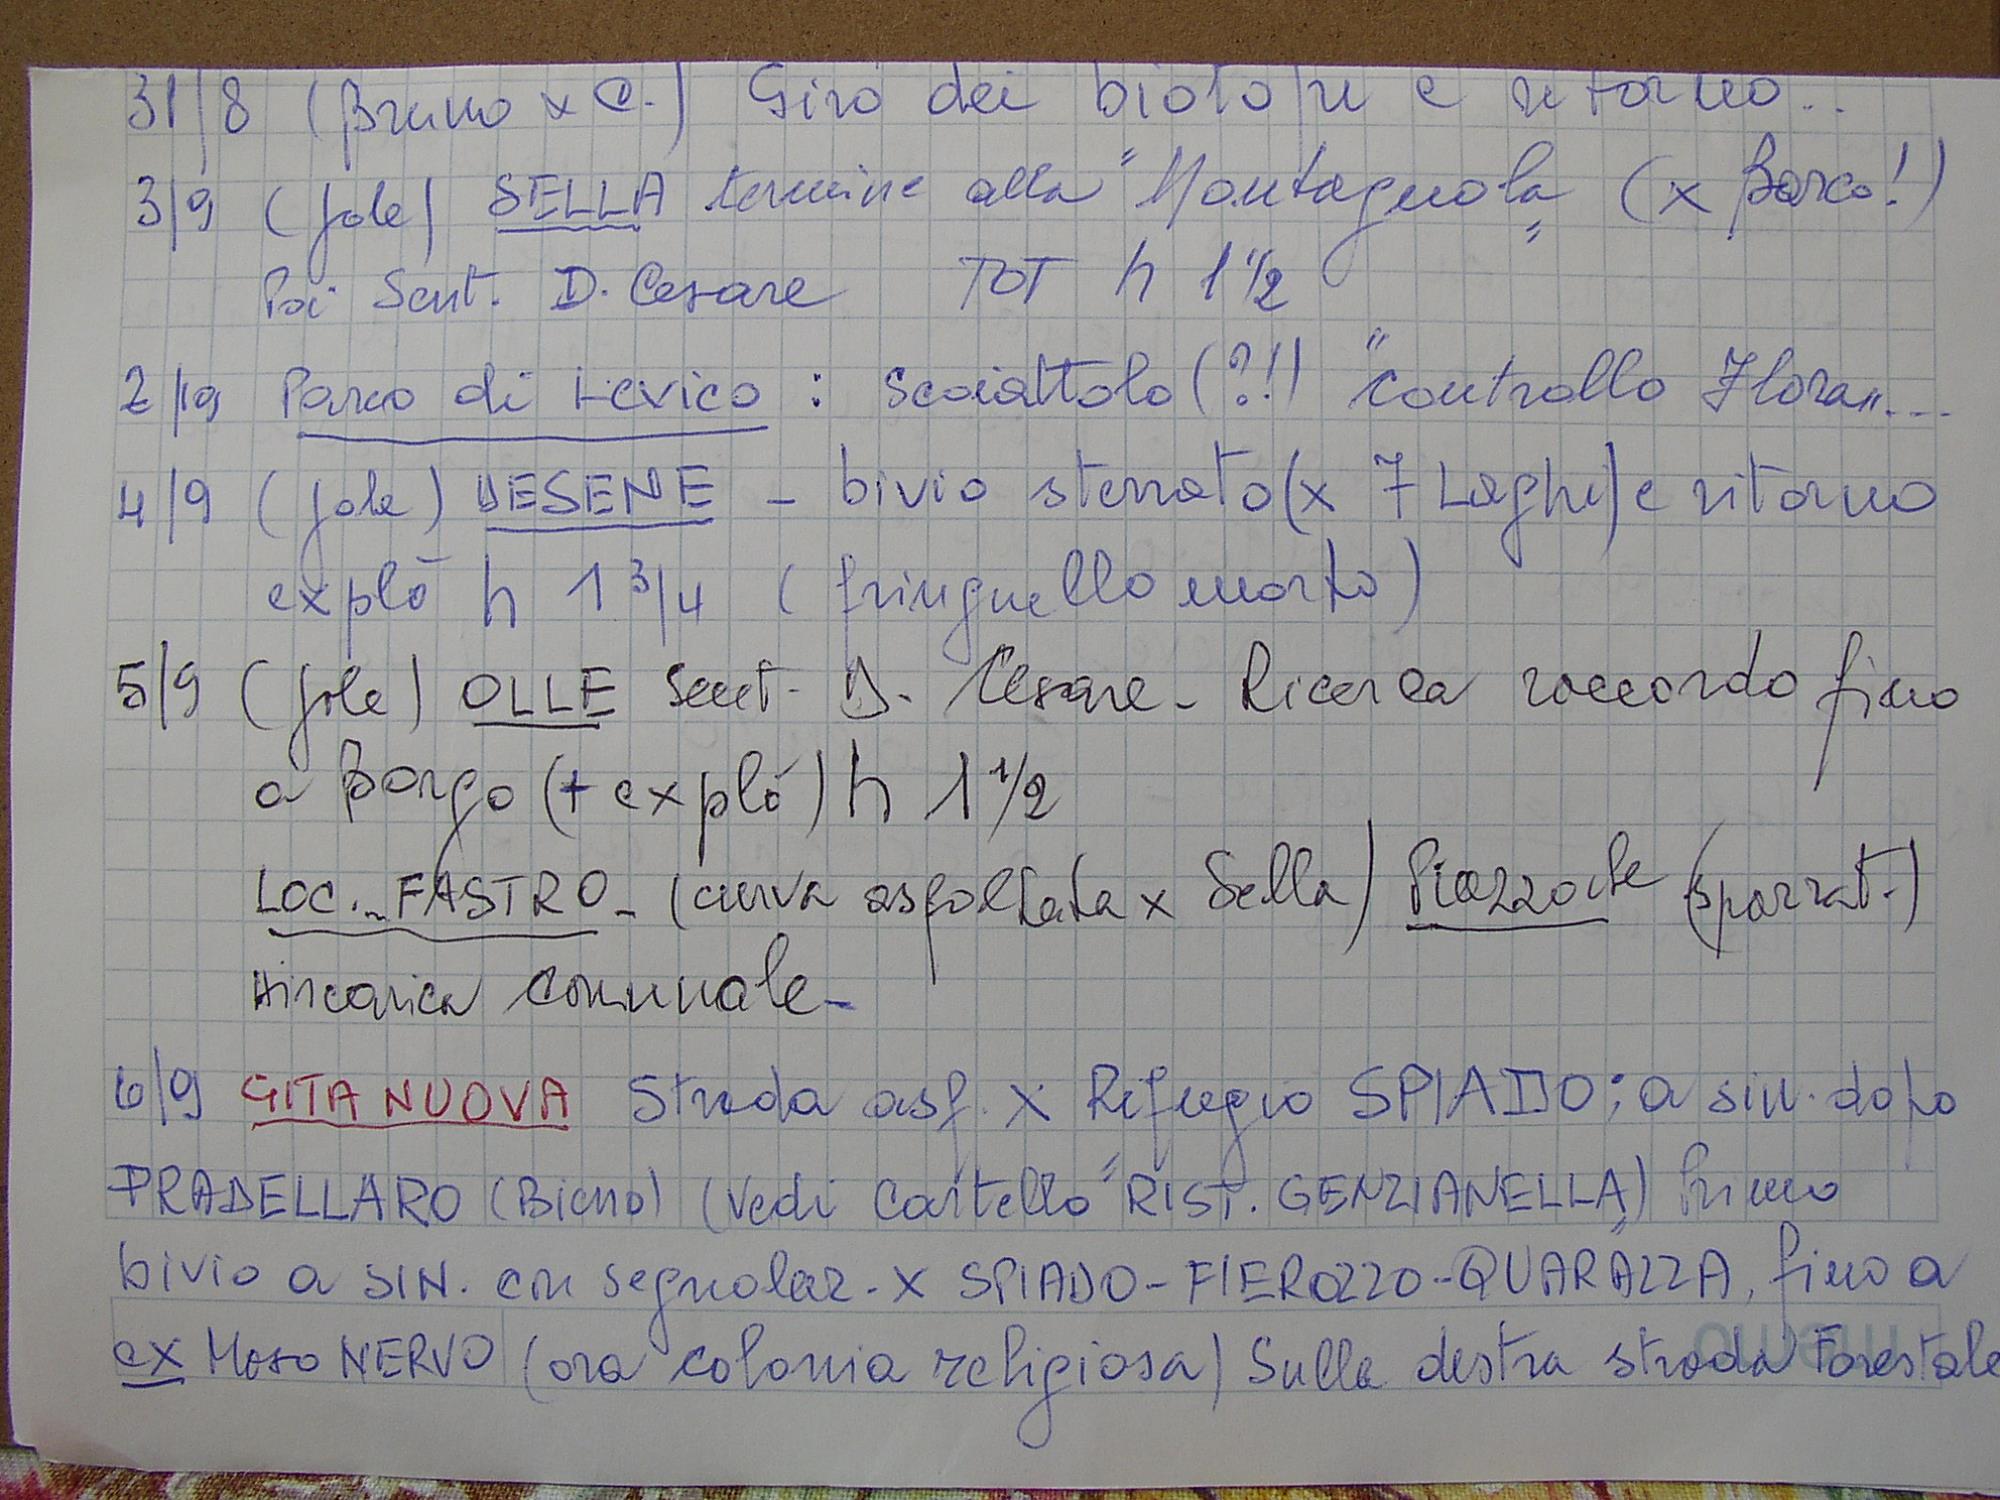 31/8 (Bruno x C.) Giro dei biotopi e ritorno..
3/9 (Jole) SELLA termine alla "Montagnola" (x Barco!)
Poi Sent. D. Cesare TOT h 1 1/2
2/9 Parco di Levico : Scoiattolo (?!) "controllo Flora"....
4/9 (Jole) DESENE - bivio sterrato (x 7 Laghi) e ritorno
explò h 1 3/4 (fringuello morto)
5/9 (Jole) OLLE Sent. D. Cesare - Ricerca raccordo fino
a Borgo (+ explò) h 1 1/2
LOC. - FASTRO - (curva asfaltata x Sella) Piazzole (sparrat.)
Discarica Comunale -
6/9 GITA NUOVA Strada asf. x Rifugio SPIADO; a sin. dopo
PRADELLARO (Bieno) (Vedi Cartello "RIST. GENZIANELLA") Primo
bivio a SIN. con segnolaz. x SPIADO - FIEROZZO - QUARAZZA, fino a
ex Maso NERVO (ora colonia religiosa) Sulla destra strada Forestale